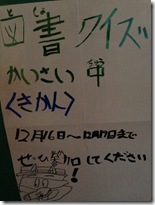 図書クイズ
かいさい中
<きかん>
12月16日〜12月17日まで
ぜひ参加してください!